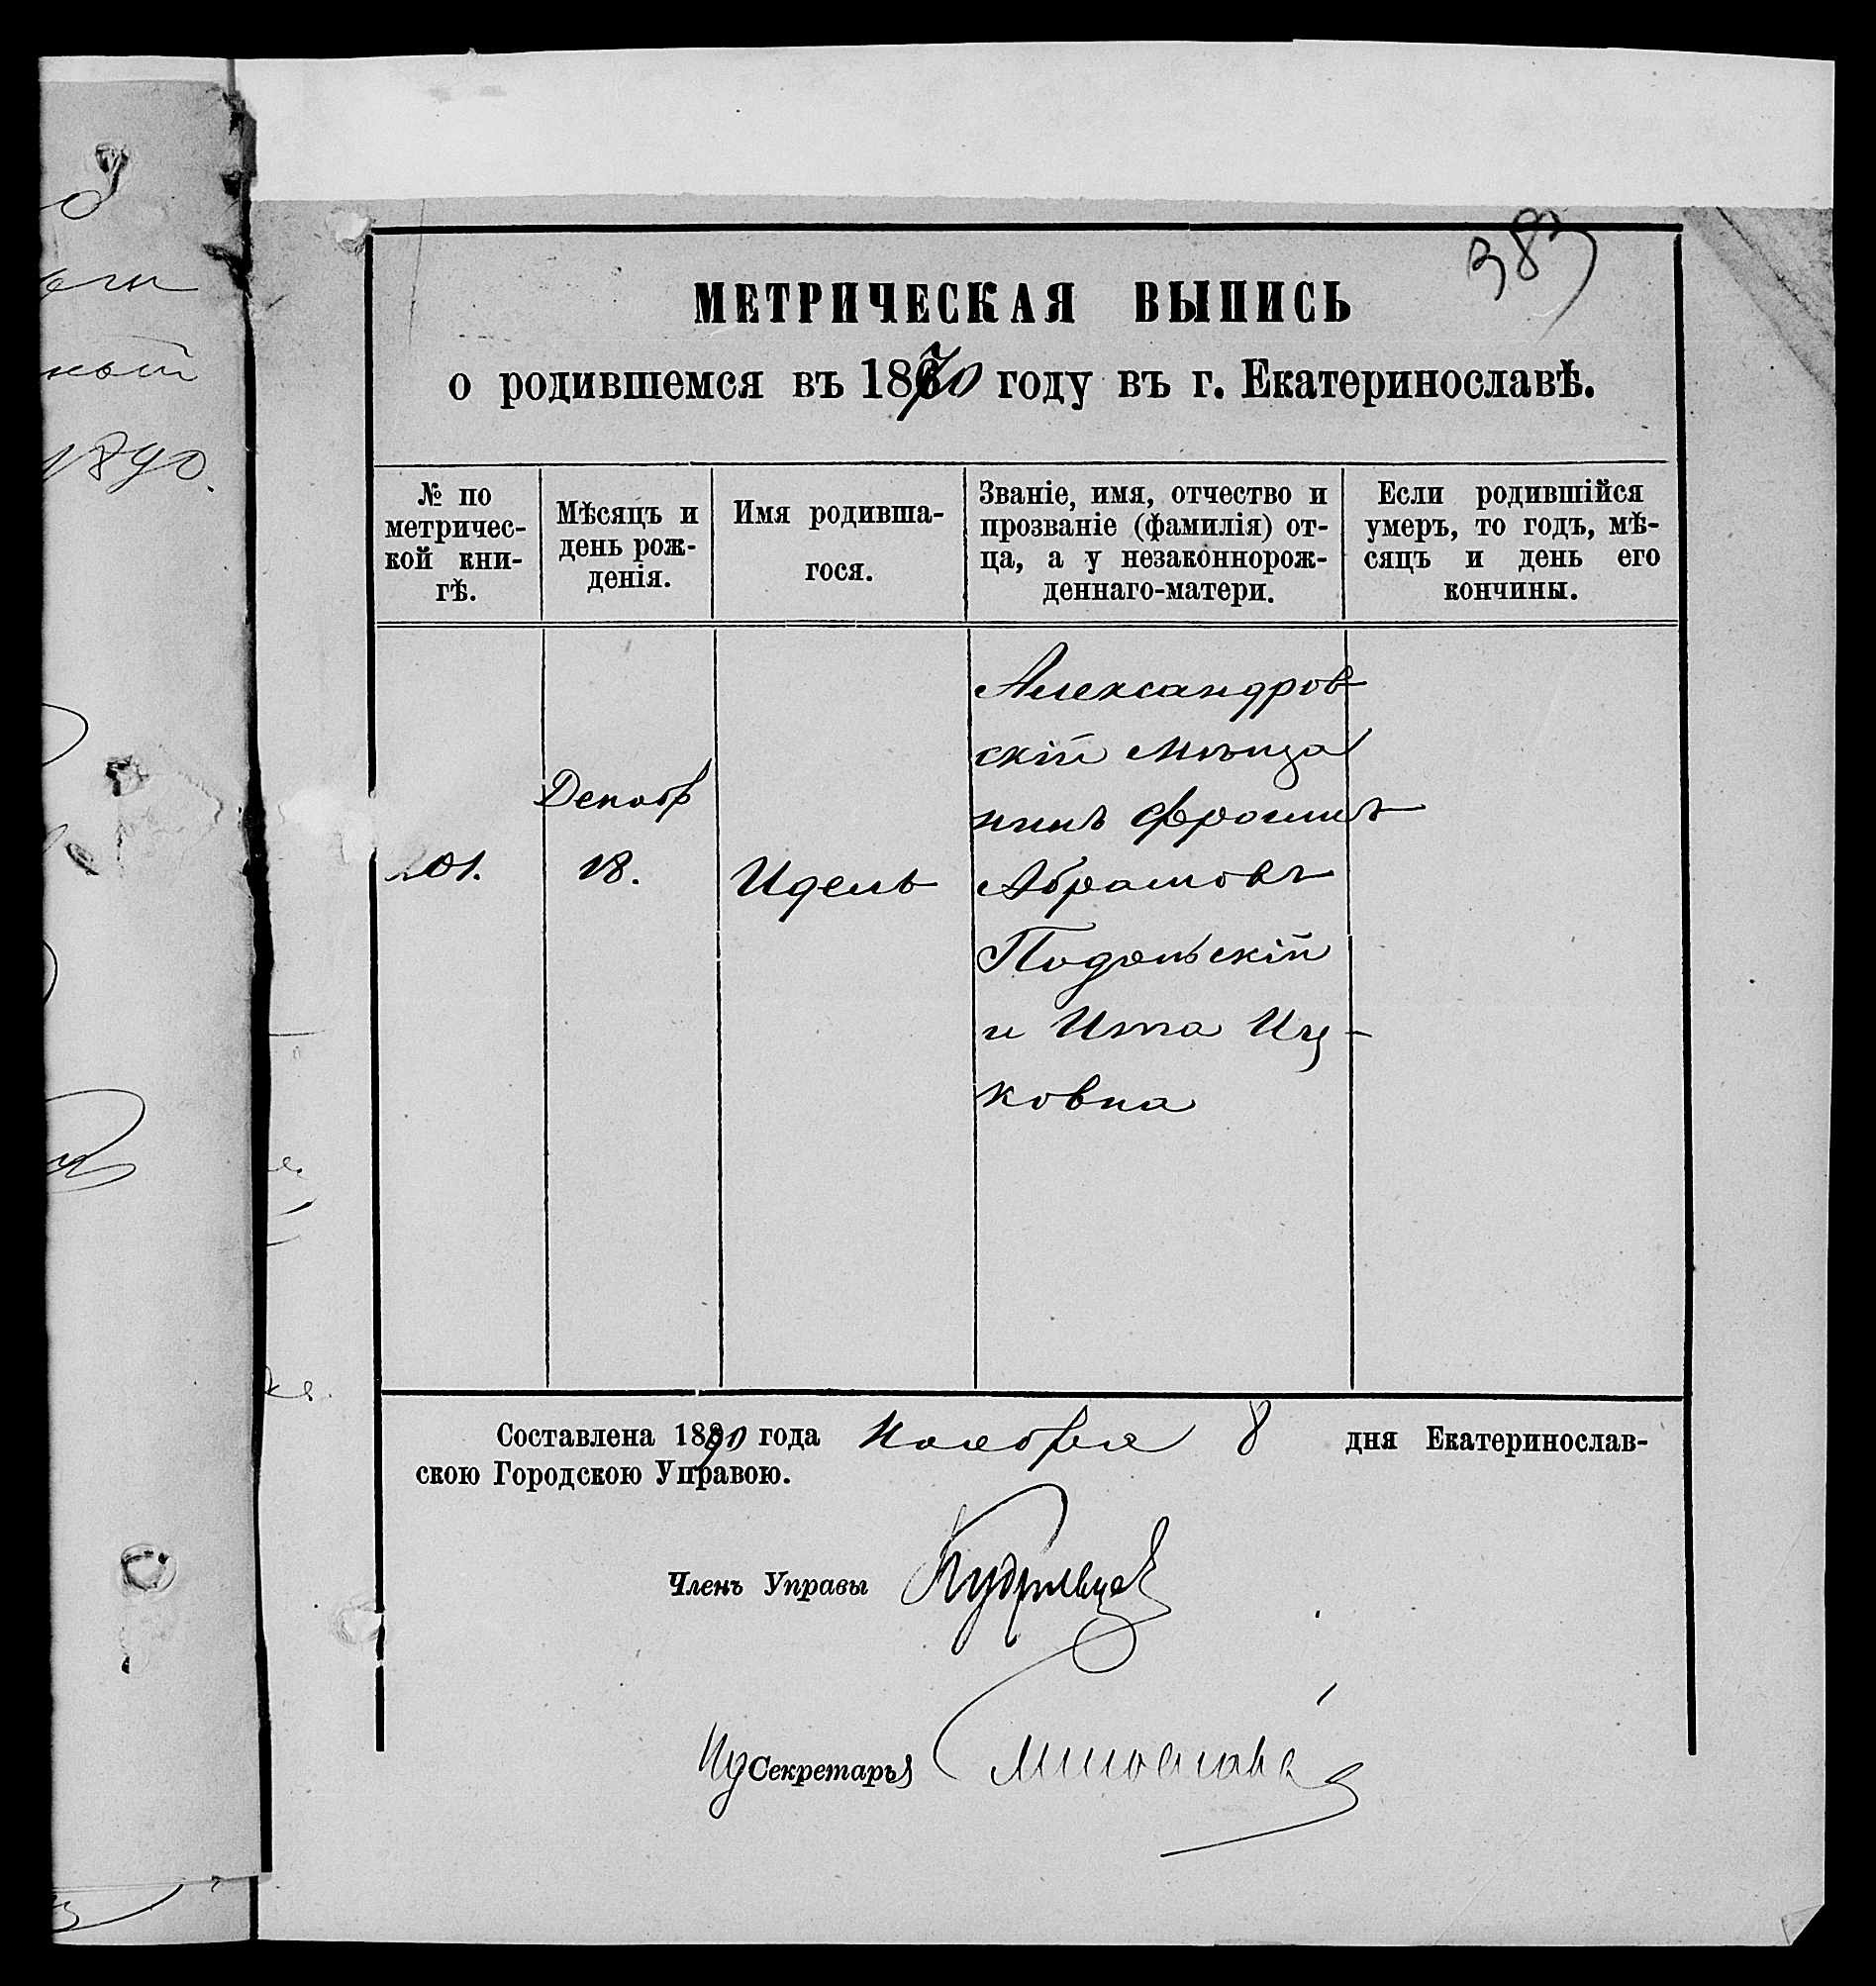 383
МЕТРИЧЕСКАЯ ВЫПИСЬ
о родившемся въ 1870 году въ г. Екатеринославѣ.
№ по
метричес-
кой кни-
гѣ.
Мѣсяцъ и
день рож-
денія.
Имя родивша-
гося.
Званіе, имя, отчество и
прозваніе (фамилія) от-
ца, а у незаконнорож-
деннаго-матери.
Если родившійся
умеръ, то годъ, мѣ-
сяцъ и день его
кончины.
201.
Декабр
18.
Идель
Александров
скій мѣща
нинъ Фроимъ
Абрамовъ
Подольскій
и Ита Иц-
ковна
Составлена 1890 года Ноября 8 дня Екатеринослав-
скою Городскою Управою.
Членъ Управы Кудрявцев
Секретарь
1890.